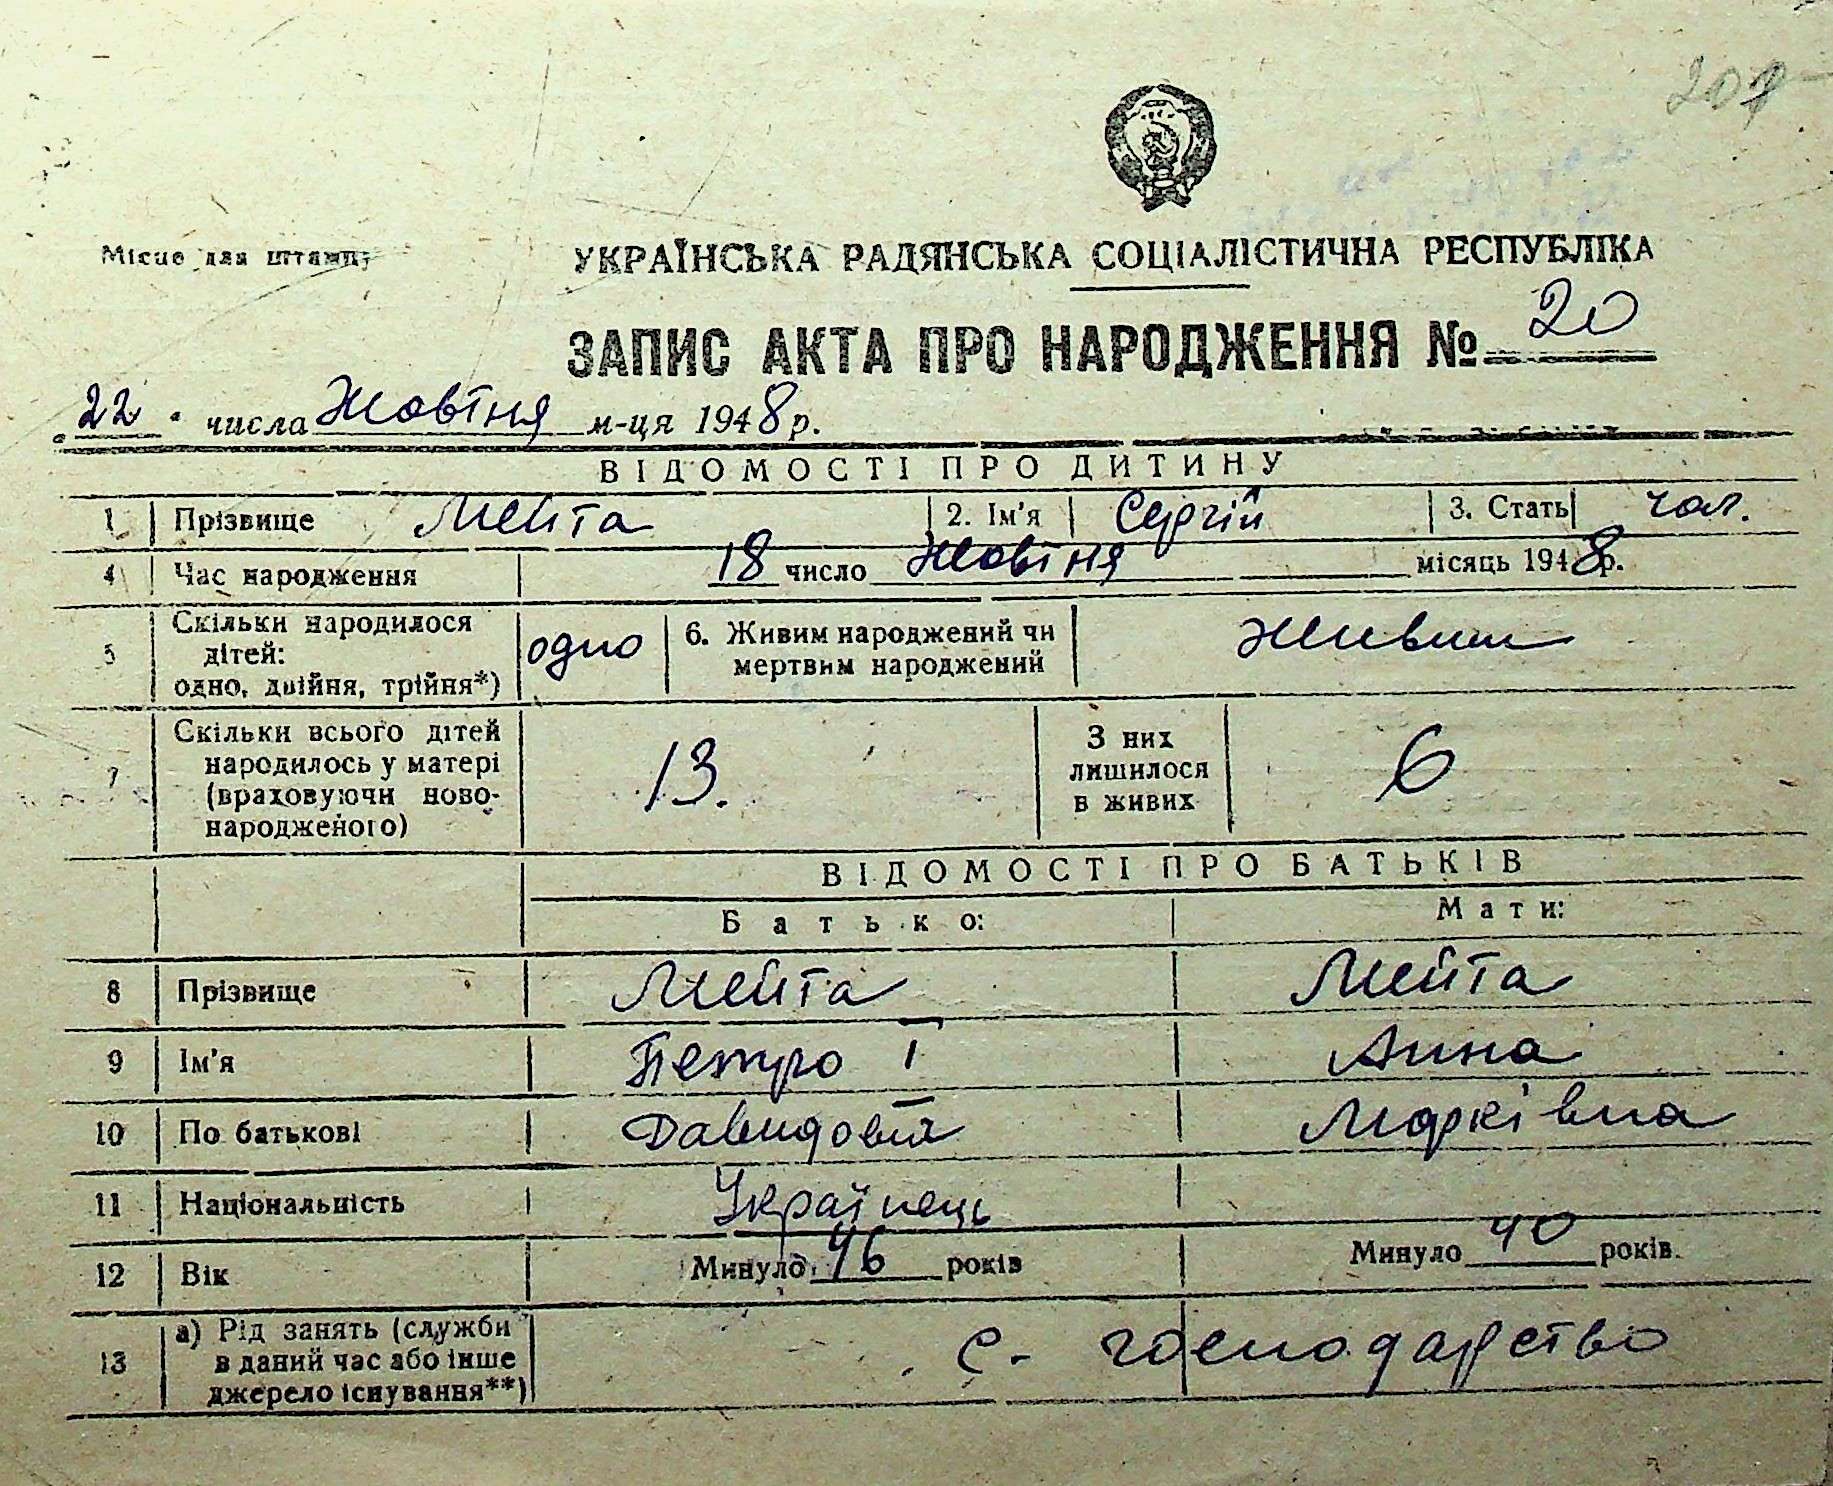 20
Місце для штампу
УКРАЇНСЬКА РАДЯНСЬКА СОЦІАЛІСТИЧНА РЕСПУБЛІКА
ЗАПИС АКТА ПРО НАРОДЖЕННЯ № 20
„22" числа Жовтня м-ця 1948 р.
ВІДОМОСТІ ПРО ДИТИНУ
1 Прізвище Мейта 2. Ім'я Сергій 3. Стать чол.
4 Час народження 18 число Жовтня місяць 1948 р.
5 Скільки народилося дітей: одно, двійня, трійня*) одно 6. Живим народжений чи мертвим народжений живим
7 Скільки всього дітей народилось у матері (враховуючи новонародженого) 13. З них лишилося в живих 6
ВІДОМОСТІ ПРО БАТЬКІВ
Батько: Мати:
8 Прізвище Мейта Мейта
9 Ім'я Петро I Анна
10 По батькові Давидович Марківна
11 Національність Українець
12 Вік Минуло 46 років Минуло 40 років.
13 а) Рід занять (служби в даний час або інше джерело існування**) с-господарство